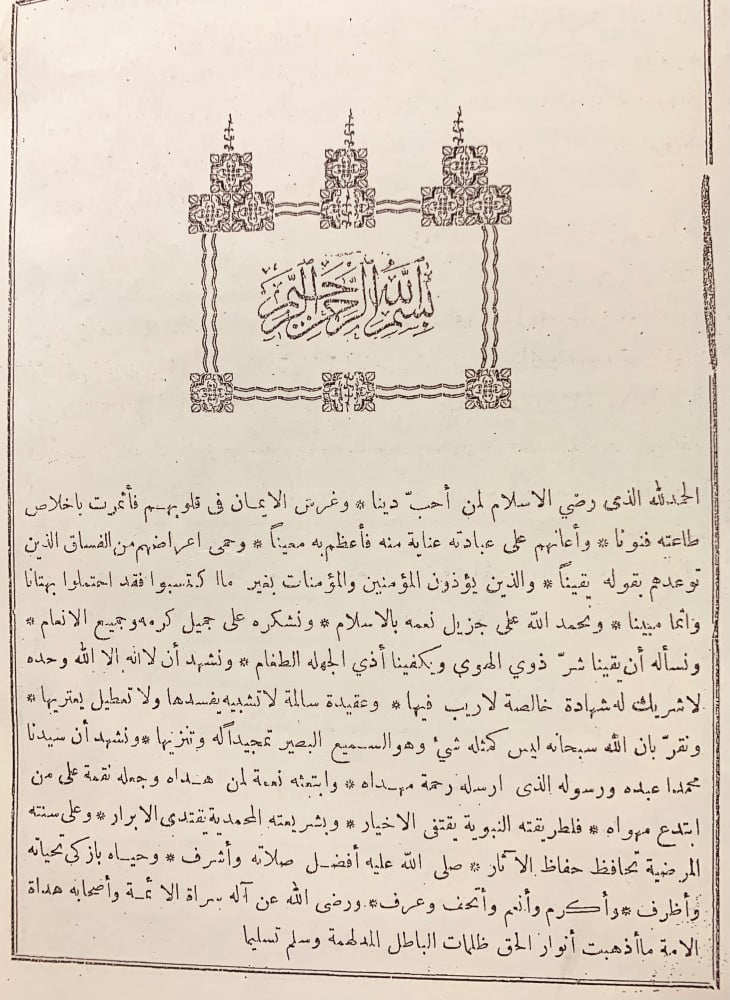 بسم الله الرحمن الرحيم
الحمد لله الذى رضي الاسلام لمن أحبّ دينا * وغرس الايمان فى قلوبهم فأثمرت باخلاص
طاعته فنونا * وأعانهم على عبادته عناية منه فأعظم به معيناً * وحمى اعراضهم من الفساق الذين
توعدهم بقوله يقيناً * والذين يؤذون المؤمنين والمؤمنات بغير ماا كتسبوا فقد احتملوا بهتانا
واثما مبينا * ونحمد الله على جزيل نعمه بالاسلام * ونشكره على جميل كرمه وجميع الانعام *
ونسأله أن يقينا شرّ ذوي الهوي ويكفينا أذي الجهله الطغام * ونشهد أن لااله الا الله وحده
لاشريك له شهادة خالصة لاريب فيها * وعقيدة سالمة لاتشبيه يفسدها ولا تعطيل يعتريها *
ونقرّ بان الله سبحانه ليس كمثله شئ وهو السميع البصير تمجيداً له وتنزيها * ونشهد أن سيدنا
محمدا عبده ورسوله الذى ارسله رحمة مهداه * وابتعثه نعمة لمن هداه وجعله نقمة على من
ابتدع مهواه * فلطريقته النبوية يقتفى الاخيار * وبشريعته المحمدية يقتدى الابرار * وعلى سنته
المرضية تحافظ حفاظ الآثار * صلى الله عليه أفضل صلاته وأشرف * وحياه بازكى تحياته
وأظرف * وأكرم وأنعم وأتحف وعرف * ورضى الله عن آله سراة الائمة وأصحابه هداة
الامة ماأذهبت أنوار الحق ظلمات الباطل المدلهمة وسلم تسليما